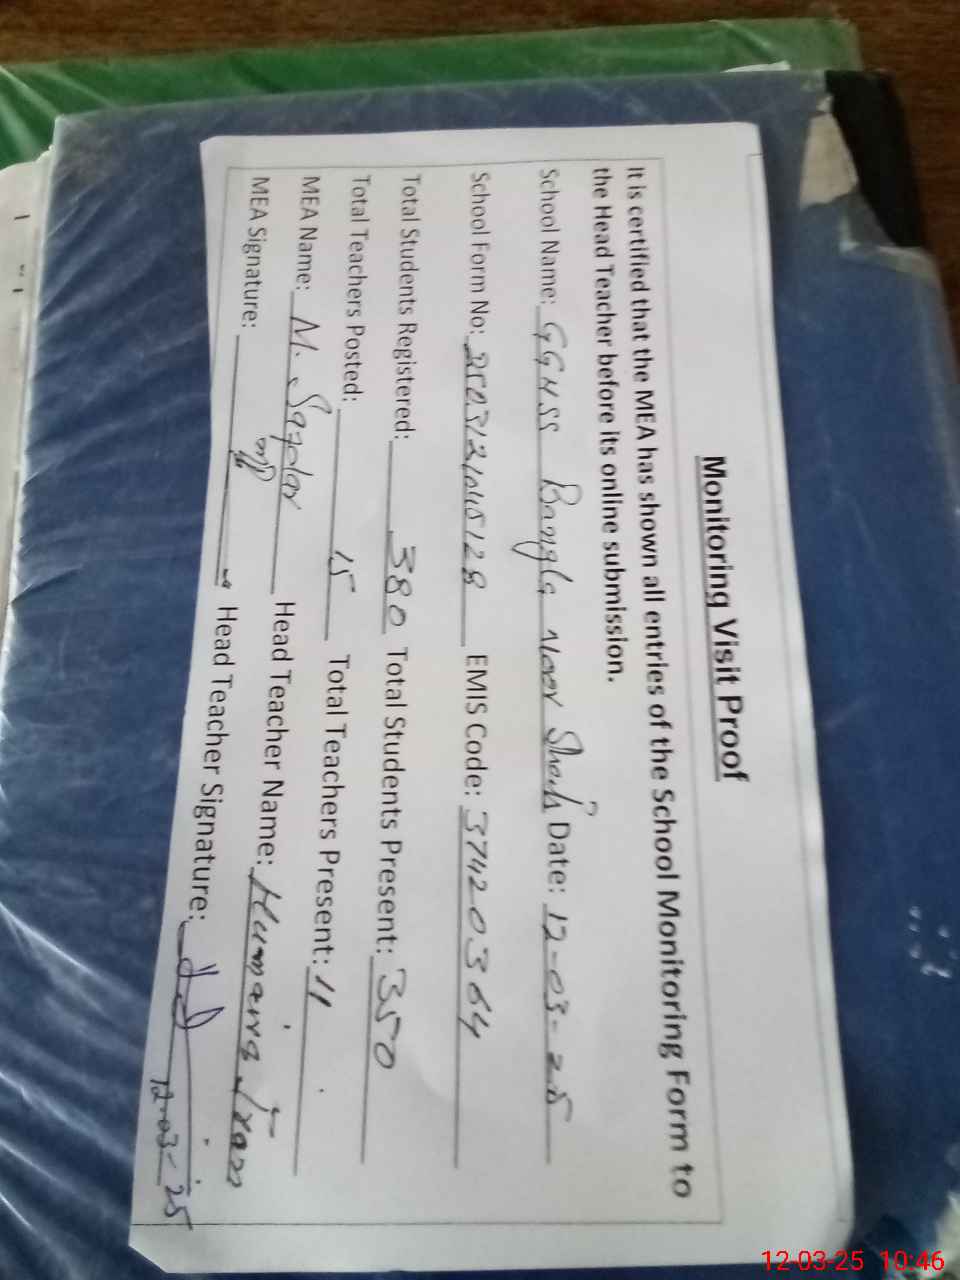 Monitoring Visit Proof
It is certified that the MEA has shown all entries of the School Monitoring Form to
the Head Teacher before its online submission.
School Name: GGHSS Bangla Noor Shah Date: 12-03-25
School Form No: EMIS Code: 37420364
Total Students Registered: 380 Total Students Present: 350
Total Teachers Posted: 15 Total Teachers Present: 11
MEA Name: M. Safdar Head Teacher Name: Humaira
MEA Signature: Head Teacher Signature:
12-03-25
12-03-25 10:46